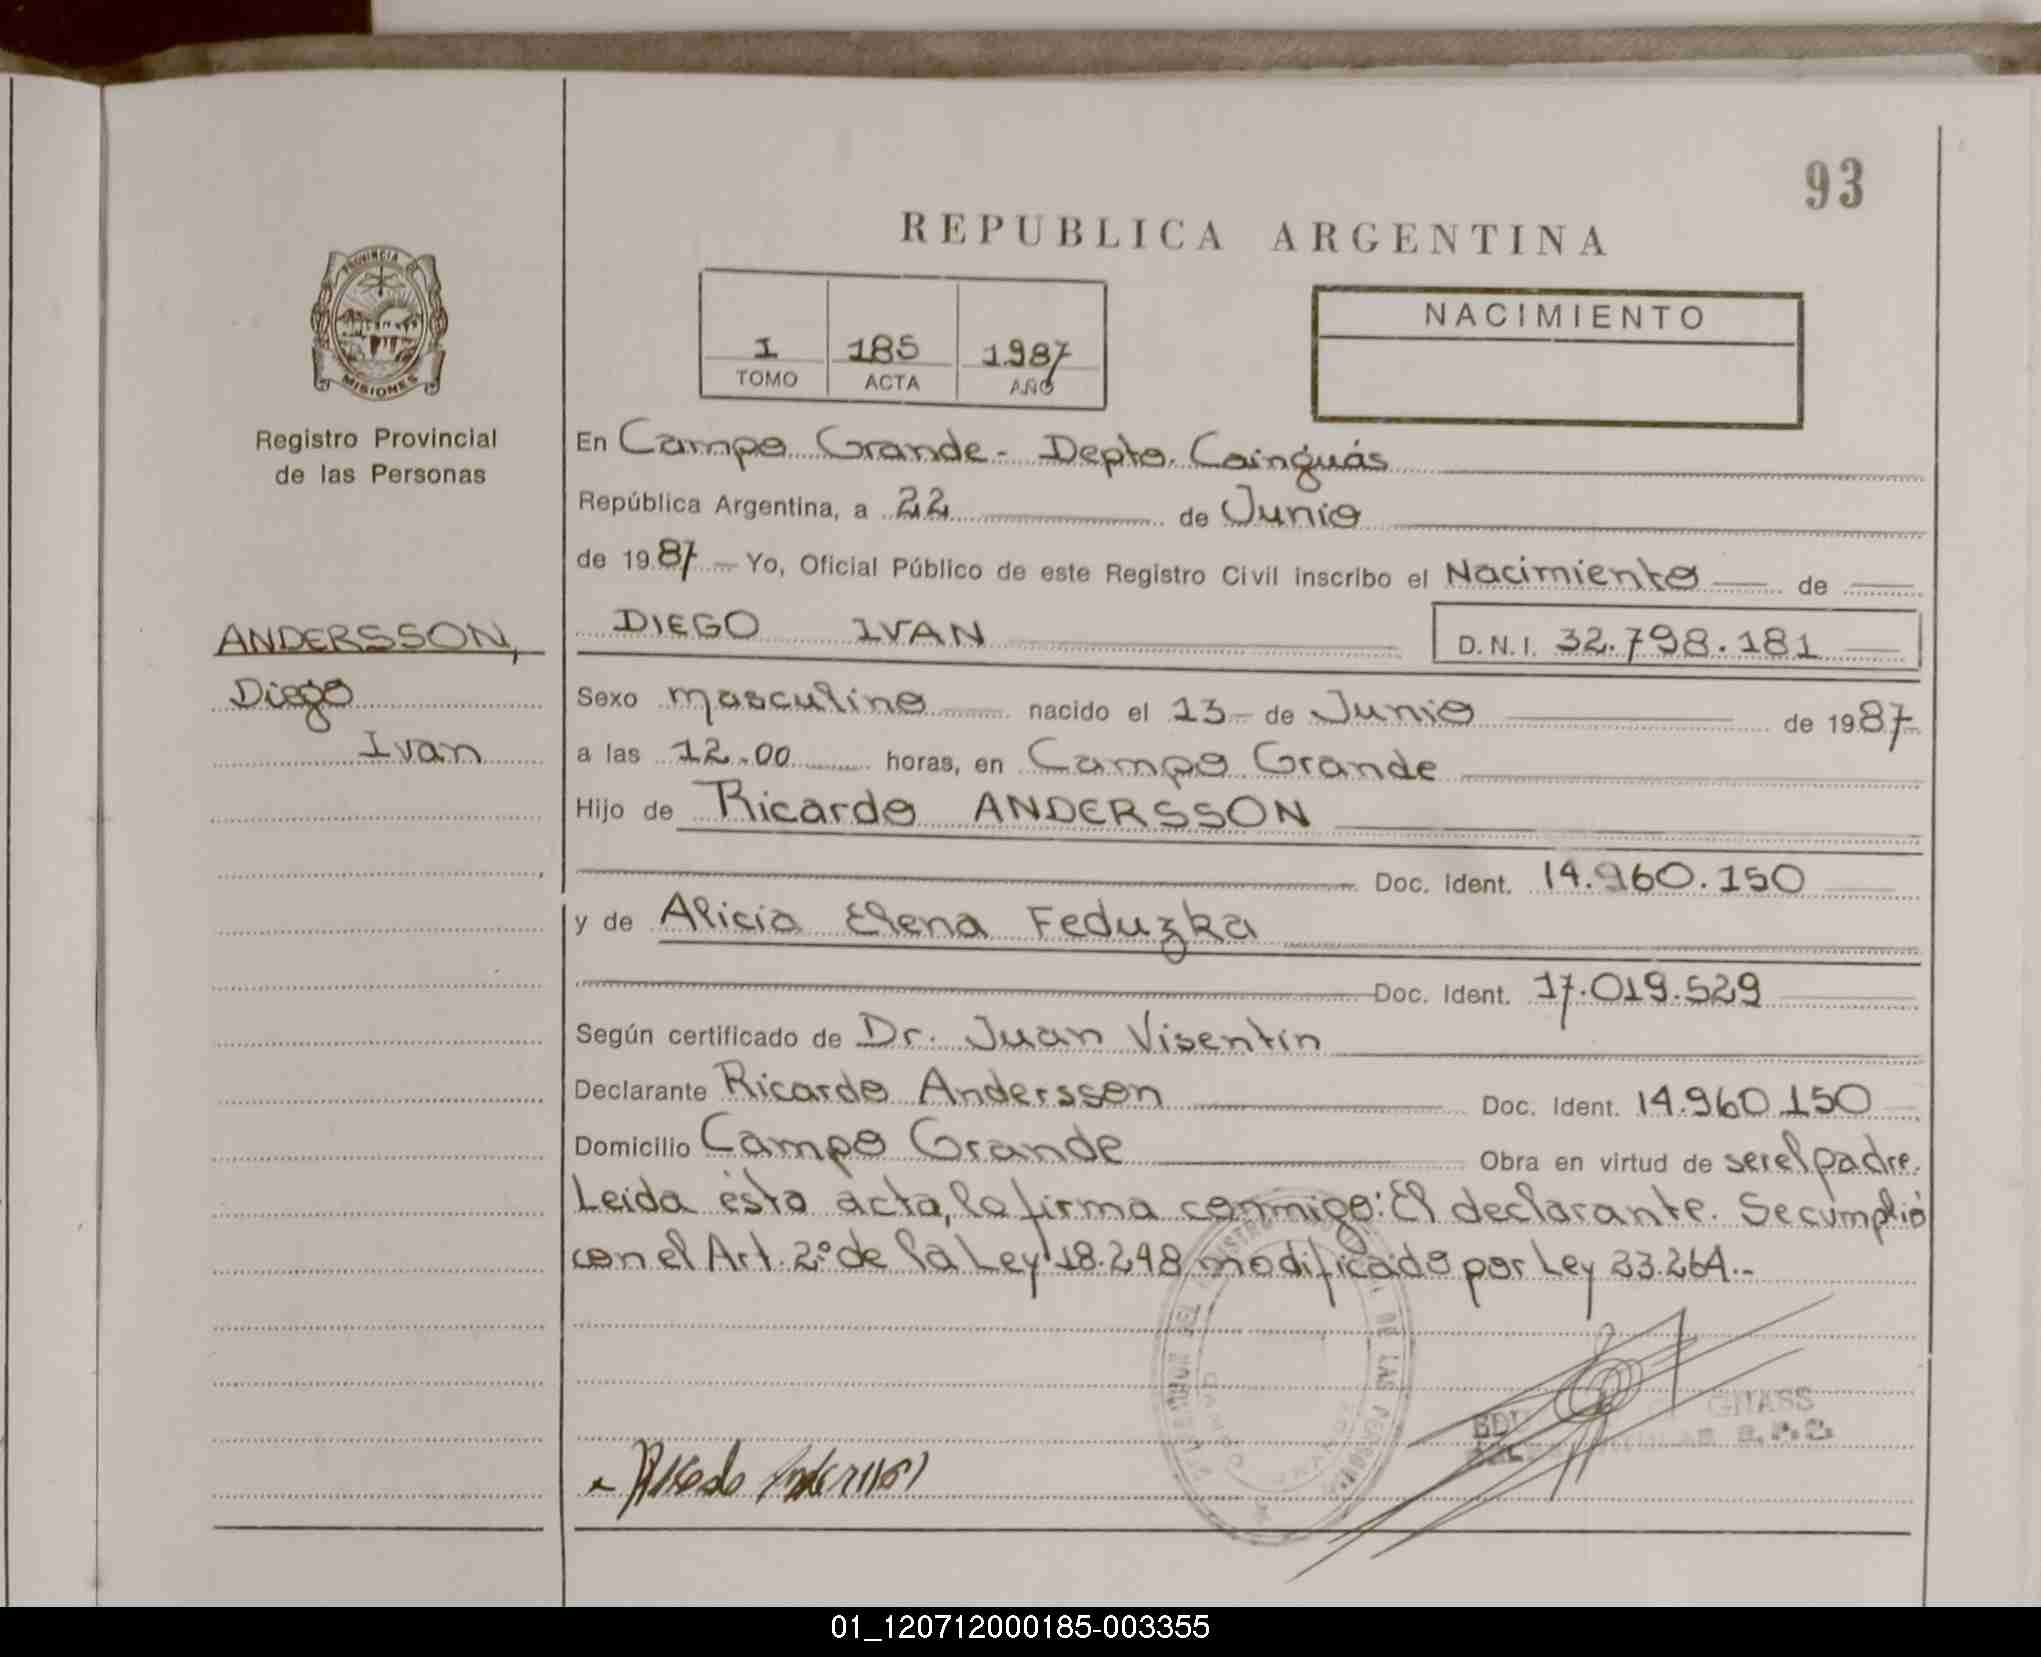 93
REPUBLICA ARGENTINA
PROVINCIA DE
MISIONES
Registro Provincial
de las Personas
1 185 1987
TOMO ACTA AÑO
NACIMIENTO
En Campo Grande - Depto. Cainguás
República Argentina, a 22 de Junio
de 1987 - Yo, Oficial Público de este Registro Civil inscribo el Nacimiento de
ANDERSSON,
Diego
Ivan
DIEGO IVAN D.N.I. 32.798.181
Sexo masculino nacido el 13 - de Junio de 1987
a las 12.00 horas, en Campo Grande
Hijo de Ricardo ANDERSSON
Doc. Ident. 14.960.150
y de Alicia Elena Feduzka
Doc. Ident. 17.019.529
Según certificado de Dr. Juan Visentin
Declarante Ricardo Andersson Doc. Ident. 14.960.150
Domicilio Campo Grande Obra en virtud de ser el padre.
Leida ésta acta, la firma conmigo: El declarante. Se cumplió
con el Art. 2º de la Ley 18.248 modificado por Ley 23.264.-
DE LAS
GNASS
Ricardo Andersson
01_120712000185-003355